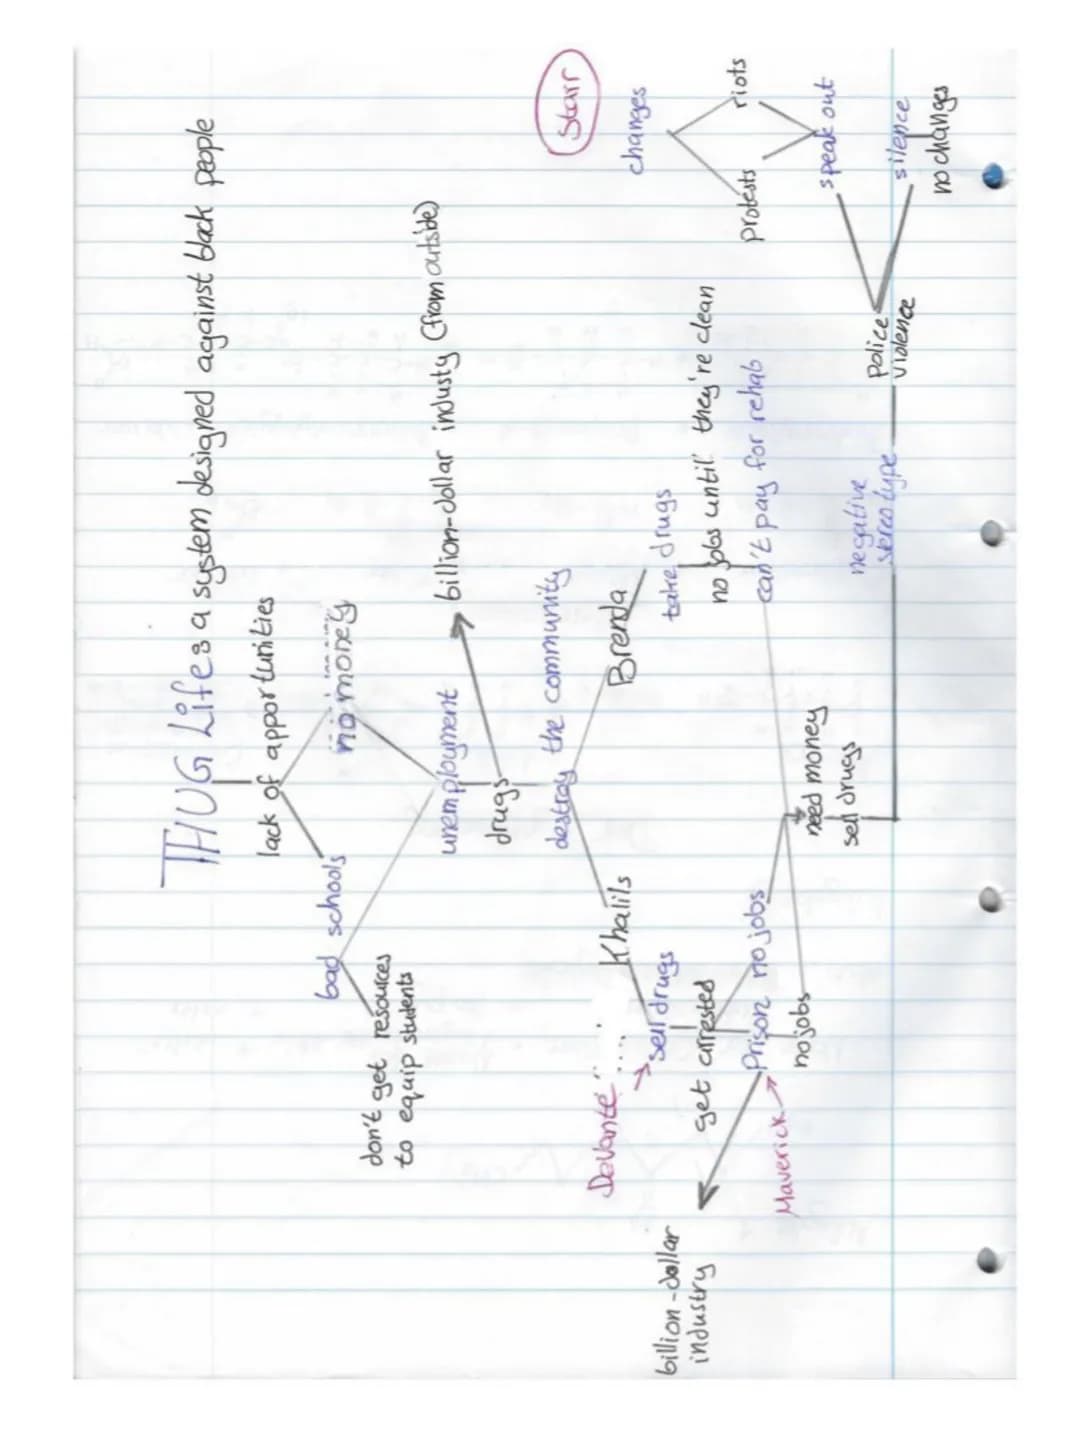 THUG Life: a system designed against black people
lack of apportunities
bad schools
no money
don't get resources
to equip students
unemployment
drugs
billion-dollar industy (from outside)
destroy the community
Khalils
Brenda
Devante
sell drugs
take drugs
get arrested
no jobs until they're clean
Prison
no jobs
can't pay for rehab
Maverick
no jobs
billion-dollar
industry
need money
sell drugs
negative
stereotype
Police
violence
speak out
silence
no changes
protests
riots
changes
Starr